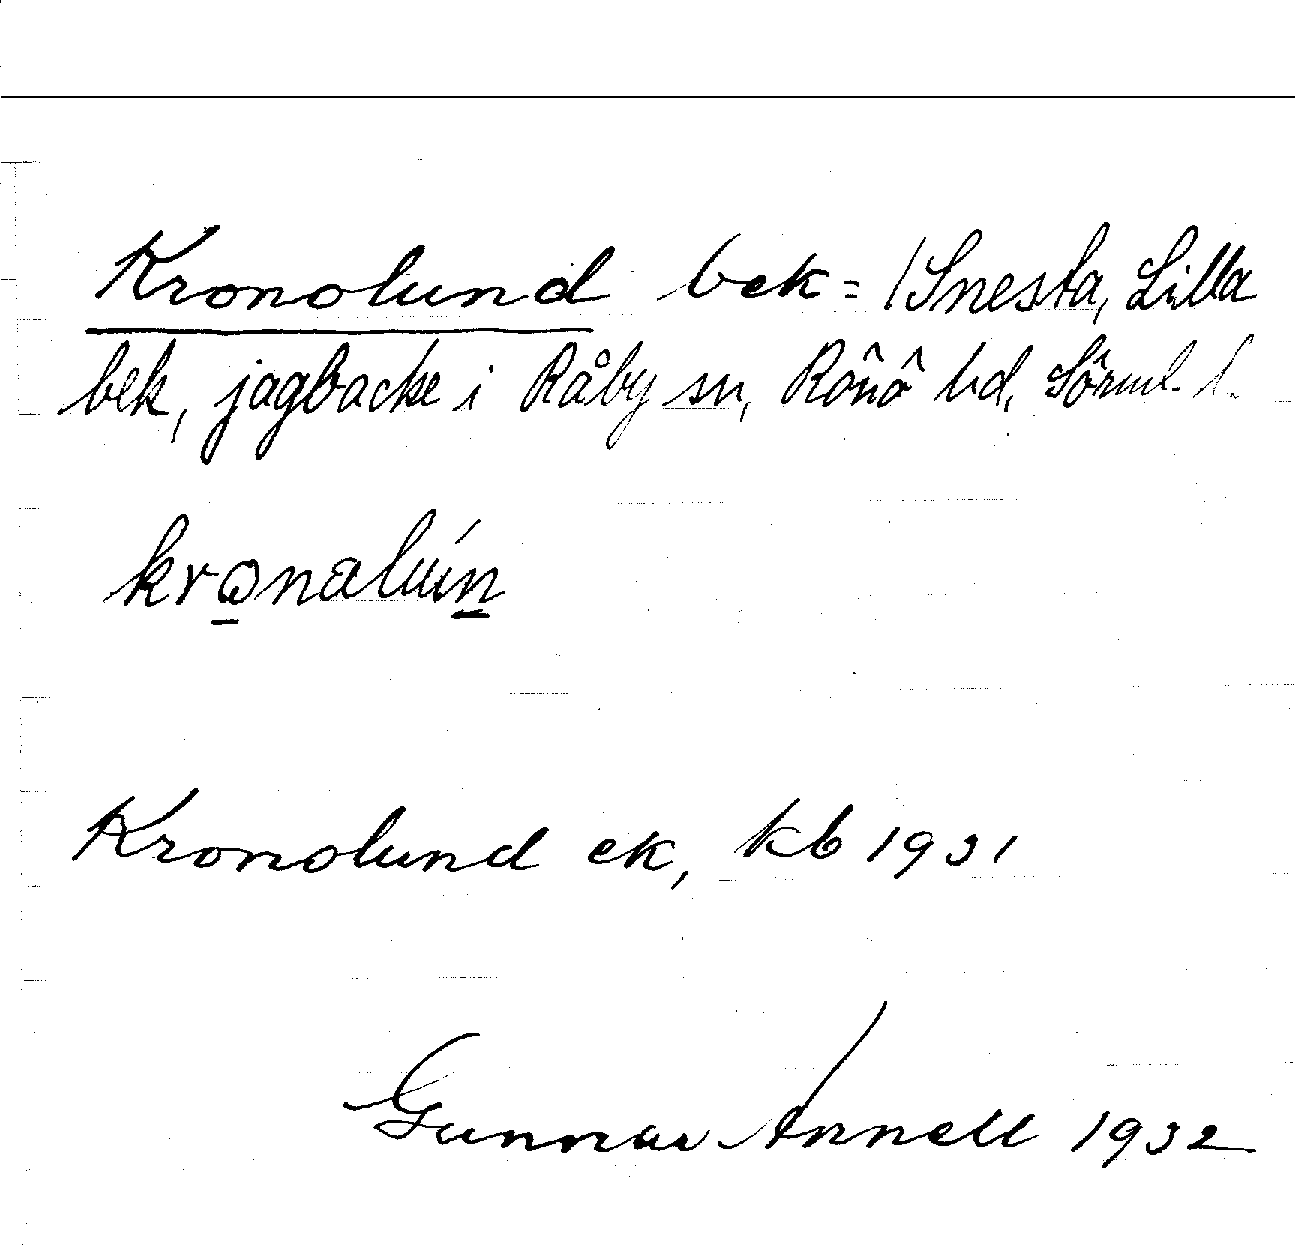 Kronolund bek = /Snesta, Lilla
bek, jagbacke i Råby sn, Rönö hd, Sörml. l.
kronalún
Kronolund ek, kb 1931
Gunnar Annell 1932